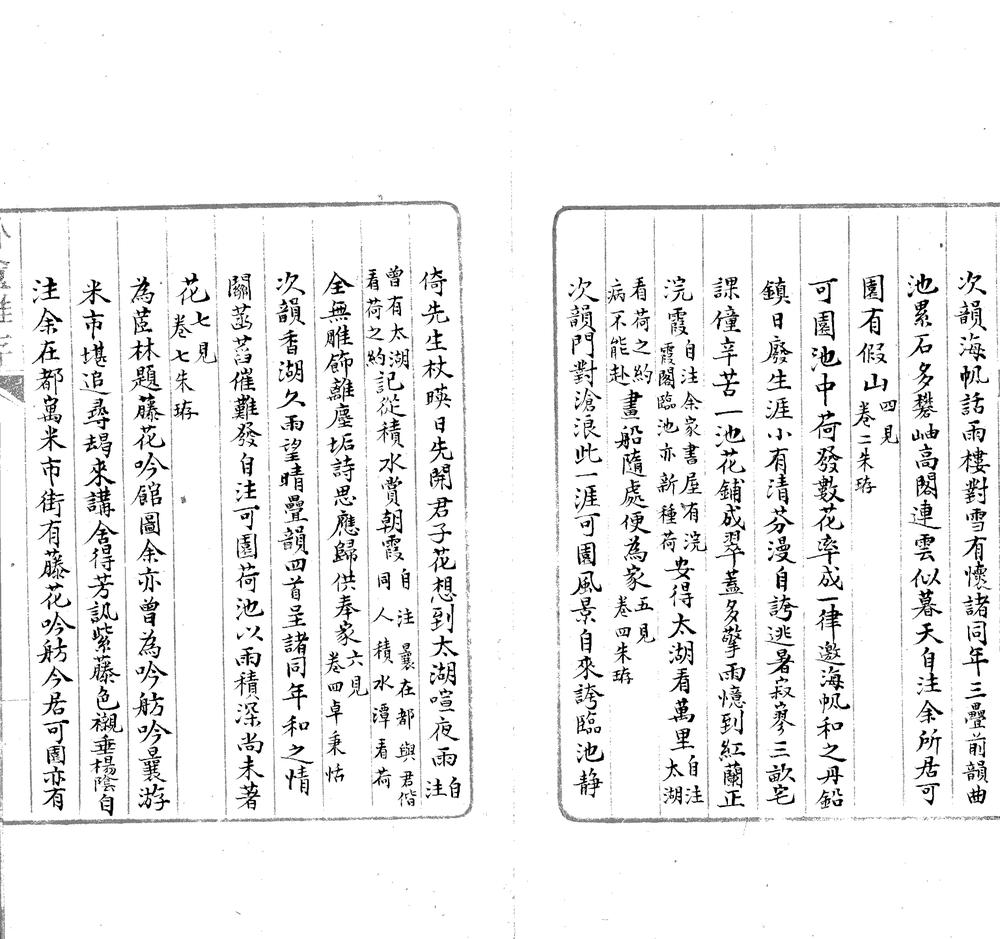 次韻海帆話雨樓對雪有懷諸同年三疊前韻曲
池累石多礬岫高閣連雲似暮天自注余所居可
園有假山四見卷二朱珔
可園池中荷發數花率成一律邀海帆和之丹鉛
鎮日廢生涯小有清芬漫自誇逃暑寂寥三畝宅
課僮辛苦一池花鋪成翠蓋多擎雨憶到紅蘭正
浣霞自注余家書屋有浣霞閣臨池亦新種荷安得太湖看萬里自注太湖
看荷之約病不能赴畫船隨處便為家五見卷四朱珔
次韻門對滄浪此一涯可園風景自來誇臨池静
倚先生杖暎日先開君子花想到太湖喧夜雨自注
曾有太湖看荷之約記從積水賞朝霞自注曩在都與君偕同人積水潭看荷
全無雕飾離塵垢詩思應歸供奉家六見卷四卓秉恬
次韻香湖久雨望晴疊韻四首呈諸同年和之情
關菡萏催難發自注可園荷池以雨積深尚未著
花七見卷七朱珔
為茝林題藤花吟館圖余亦曾為吟舫吟曩游
米市堪追尋朅來講舍得芳訊紫藤色襯垂楊陰自
注余在都寓米市街有藤花吟舫今居可園亦有